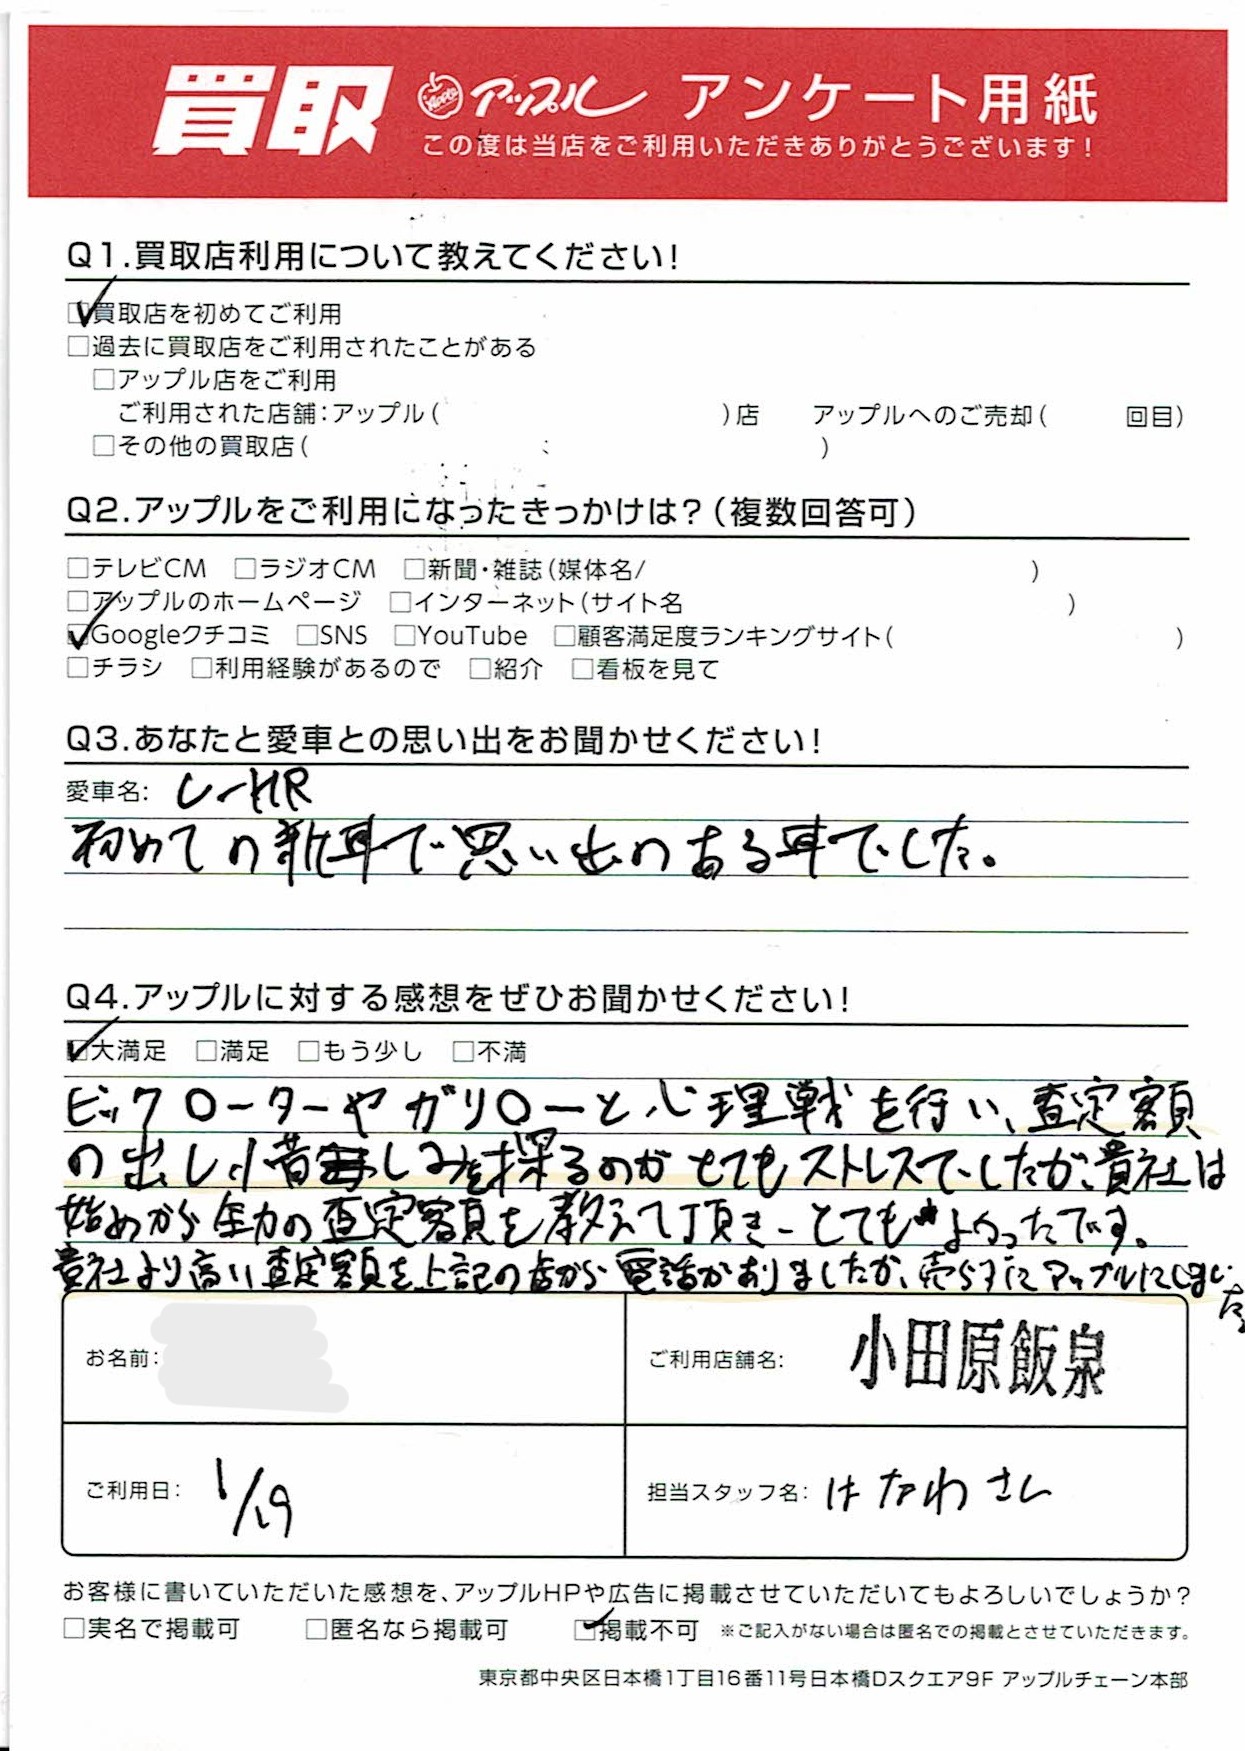 買取 アップル アンケート用紙
この度は当店をご利用いただきありがとうございます!
Q1.買取店利用について教えてください!
買取店を初めてご利用
□過去に買取店をご利用されたことがある
□アップル店をご利用
ご利用された店舗:アップル( )店 アップルへのご売却( 回目)
□その他の買取店( )
Q2.アップルをご利用になったきっかけは?(複数回答可)
□テレビCM □ラジオCM □新聞・雑誌(媒体名/ )
□アップルのホームページ □インターネット(サイト名 )
Googleクチコミ □SNS □YouTube □顧客満足度ランキングサイト( )
□チラシ □利用経験があるので □紹介 □看板を見て
Q3.あなたと愛車との思い出をお聞かせください!
愛車名: C-HR
初めての新車で思い出のある車でした。
Q4.アップルに対する感想をぜひお聞かせください!
大満足 □満足 □もう少し □不満
ビック〇ーターやガリ〇ーと心理戦を行い、査定額
の出し惜しみを探るのがとてもストレスでしたが、貴社は
始めから全力の査定額を教えて頂きとてもよかったです。
貴社より高い査定額を上記の店から電話がありましたが、売らずにアップルにしました。
お名前: ご利用店舗名: 小田原飯泉
ご利用日: 1/19 担当スタッフ名: はなわさん
お客様に書いていただいた感想を、アップルHPや広告に掲載させていただいてもよろしいでしょうか?
□実名で掲載可 □匿名なら掲載可 掲載不可 ※ご記入がない場合は匿名での掲載とさせていただきます。
東京都中央区日本橋1丁目16番11号日本橋Dスクエア9F アップルチェーン本部